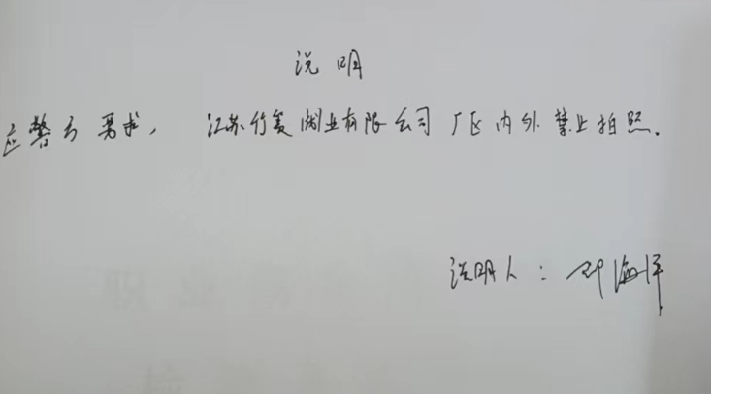 说明
应警方要求，江苏竹 业有限公司厂区内外禁止拍照。
说明人：海洋